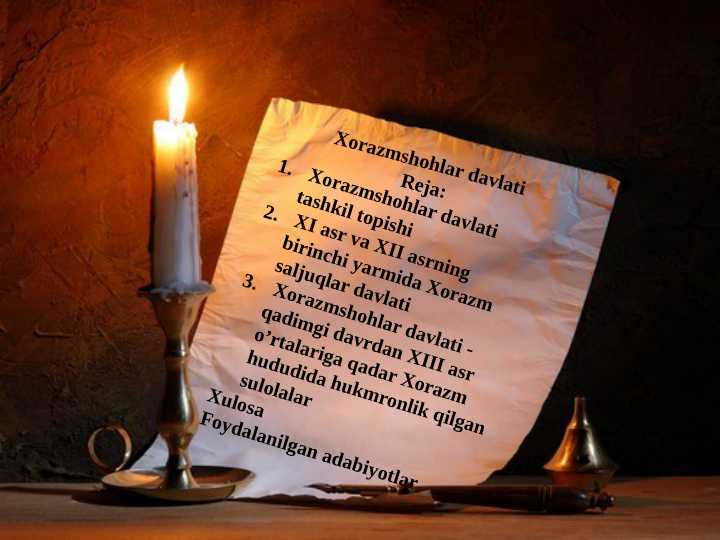 Xorazmshohlar davlati
Reja:
1. Xorazmshohlar davlati
tashkil topishi
2. XI asr va XII asrning
birinchi yarmida Xorazm
saljuqlar davlati
3. Xorazmshohlar davlati -
qadimgi davrdan XIII asr
o’rtalariga qadar Xorazm
hududida hukmronlik qilgan
sulolalar
Xulosa
Foydalanilgan adabiyotlar